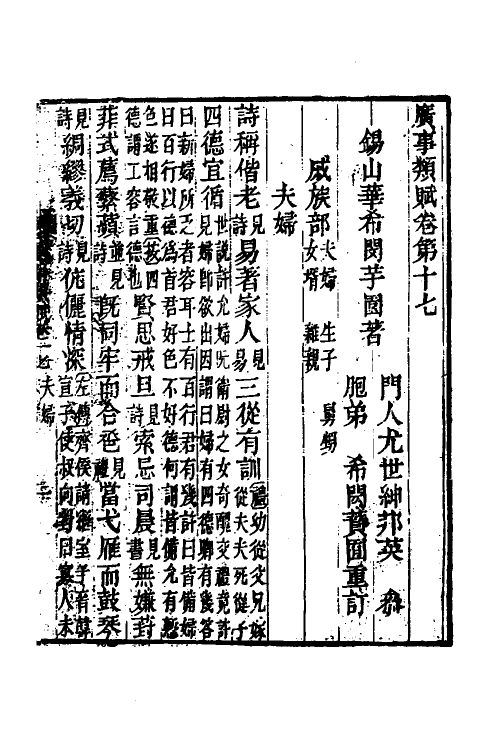 廣事類賦卷第十七
錫山華希閔芋園著
門人尤世紳邦英 叅
胞弟 希閎贊圖重訂
戚族部 夫婦 生子 舅甥 女壻 雜親
夫婦
詩稱偕老 見詩 易著家人 見易 三從有訓 禮幼從父兄嫁從夫夫死從子
四德宜循 世說許允婦阮衞尉之女奇醜交禮竟許見婦卽欲出因謂曰婦有四德卿有幾答
曰新婦所乏者容耳士有百行君有幾許曰皆備婦曰百行以德爲首君好色不好德何謂皆備允有慙
色遂相敬重 按四德謂工容言德也 賢思戒旦 見詩 索忌司晨 見書 無嫌葑
菲式薦蘩蘋 並見詩 旣同牢而合巹 見禮 當弋雁而鼓琴
見詩 綢繆義切 見詩 伉儷情深 左傳齊侯請繼室于晉韓宣子使叔向對曰寡人未
夫婦